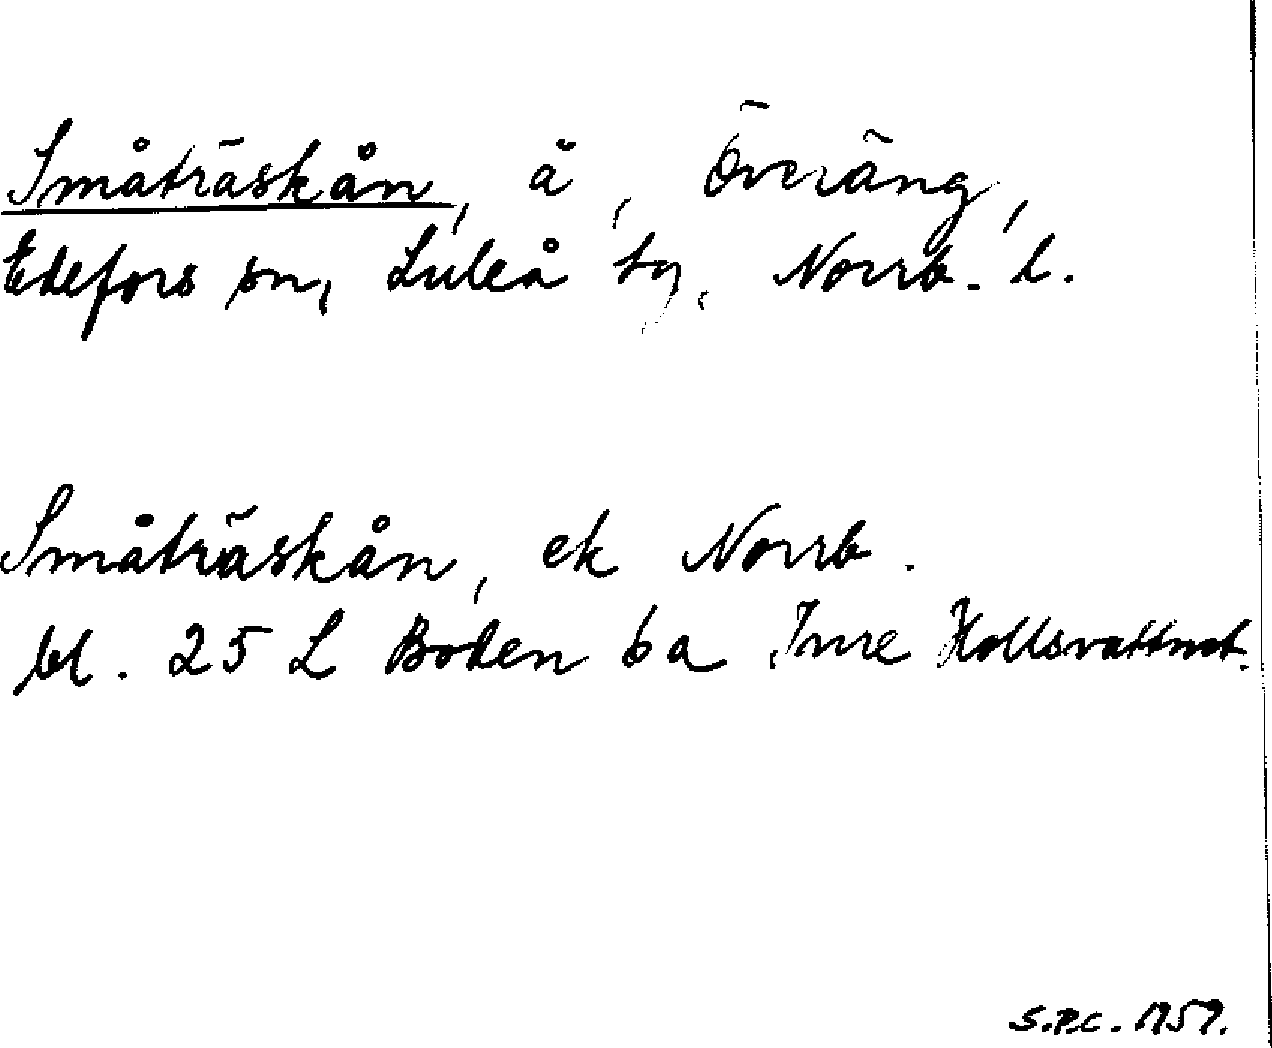 Småträskån, å, Överäng,
Edefors sn, Luleå tg, Norrb. l.
Småträskån, ek Norrb.
bl. 25 L Boden 6a Inre Hollsvattnet.
S.P.C. 1959.